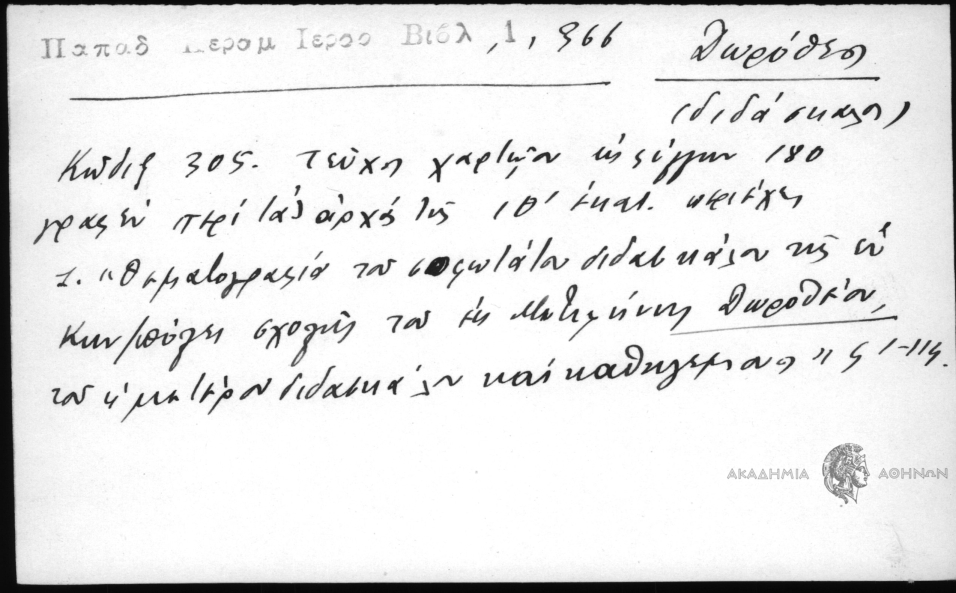 Παπαδ Κεραμ Ιεροσ Βιβλ 1, 366
Δωρόθεος
(διδάσκαλος)
Κώδιξ 305. τεύχος χαρτῶον ἐκ φύλλων 180
γραφὲν περὶ τὰς ἀρχὰς τῆς ΙΘ' ἑκατ. περιέχει
1. "Θεματογραφία τοῦ σοφωτάτου διδασκάλου τῆς ἐν
Κων/πόλει σχολῆς τοῦ ἐκ Μιτυλήνης Δωροθέου,
τοῦ ἡμετέρου διδασκάλου καὶ καθηγεμόνος" φ 1-114.
ΑΚΑΔΗΜΙΑ ΑΘΗΝΩΝ